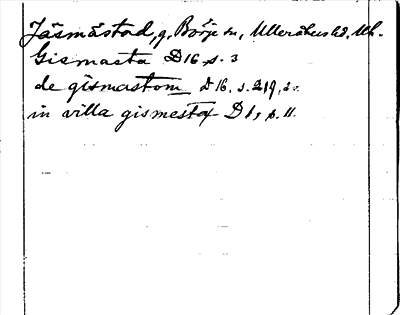 Jäsmåstad, g. Börje sn, Ulleråkers hd. Uh.
Gismasta D 16, s. 3
de gismastom D 16, s. 219, 20.
in villa gismestax D 1, s. 11.